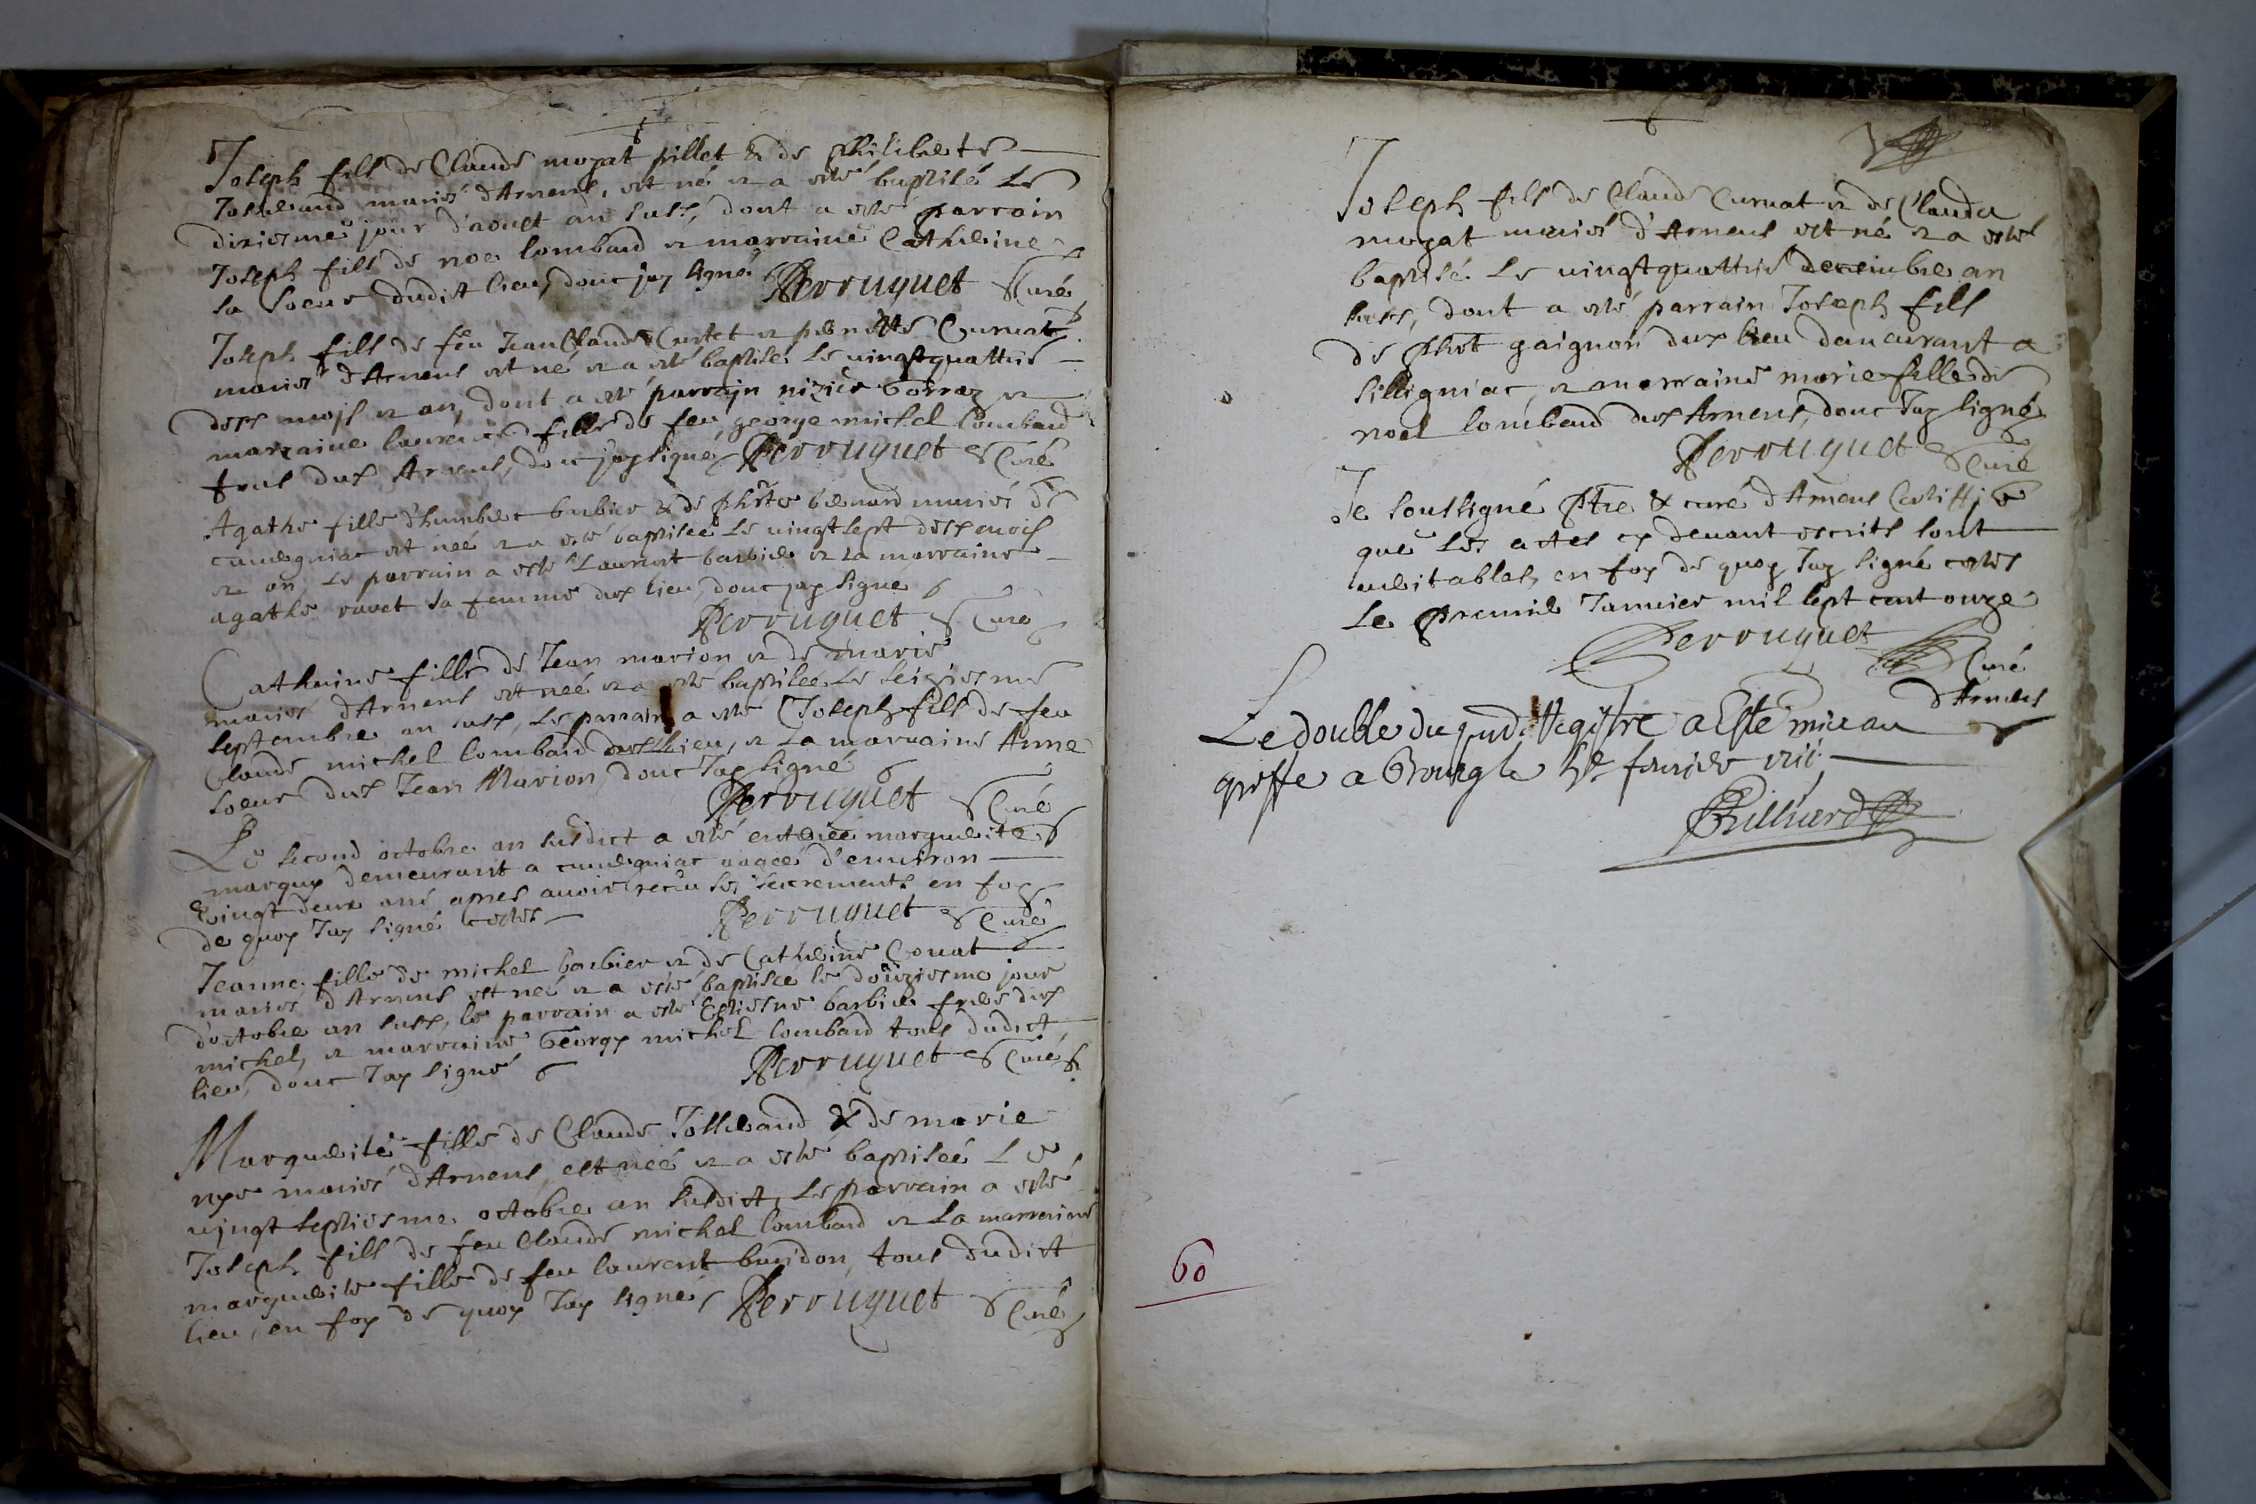 Joseph fils de Claude mozat pillet & de philiberte
Josserand mariés d'Arnens, est né et a esté baptisé le
dixiesme jour d'aoust an susd, dont a esté parrain
Joseph fils de noe lombard et marraine Catherine
sa soeur dudict lieu, donc jay signé Perruquet Curé
Joseph fils de feu Jean Claude Curtet et pernette Curnat
mariés d'Arnens est né et a esté baptisé le vingtquattrie
desd mois et an, dont a esté parrain nizier Gorraz et
marraine laurence fille de feu george michel lombard
tous dud Arnens, donc jay signé Perruquet Curé
Agathe fille d'humbert barbier & de phte bernard mariés de
est née et a esté baptisée le vingt sept desd mois
et an, le parrain a esté Laurent barbier et la marraine
agathe ravet sa femme dud lieu, donc jay signé
Perruquet Curé
Catherine fille de Jean marion et de marie
mariés d'Arnens est née et a esté baptisée le seiziesme
septembre an susd, le parrain a esté Joseph fils de feu
Claude michel lombard dud lieu, et la marraine Anne
soeur dud Jean Marion, donc Jay signé
Perruquet Curé
Le second octobre an susdict a esté enterrée marguerite
marquy demeurant a aagée d'environ
vingt deux ans apres avoir receu les sacrements en foy
de quoy Jay signé Perruquet Curé
Jeanne fille de michel barbier et de Catherine Covat
mariés d'Arnens est née et a esté baptisée le douziesme jour
d'octobre an susd, le parrain a esté Estiesne barbier frere dud
michel, et marraine Georgy michel lombard tous dudict
lieu, donc Jay signé Perruquet Curé
Marguerite fille de Claude Josserand & de marie
mariés d'Arnens, est née et a esté baptisée Le
vingt septiesme octobre an susdict, le parrain a esté
Joseph fils de feu Claude michel lombard et la marraine
marguerite fille de feu laurent buidon, tous dudict
lieu, en foy de quoy Jay signé Perruquet Curé
Joseph fils de Claude Curnat et de Clauda
mozat mariés d'Arnens est né et a esté
baptisé le vingtquattrie decembre an
susd, dont a esté parrain Joseph fils
de phbt gaignon dud lieu demeurant a
silligniac, et marraine marie fille de
noel lombard dud Arnens, donc Jay signé
Perruquet Curé
Je soussigné ptre & curé d'Arnens Certiffie
que les actes cy devant escrits sont
veritables, en foy de quoy Jay signé
Le premier Janvier mil sept cent onze
Perruquet Curé
d'Arnens
Le double du pnd. Registre a Esté mis au
greffe a Bourg le fevrier
60